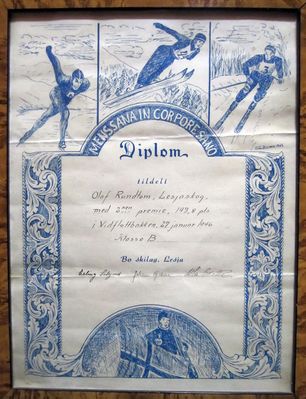 MENS SANA IN CORPORE SANO
Diplom
tildelt
Olaf Rundtom, Lesjaskog,
med 2nen premie, 149,8 pts
i Vidflottbakken, 27. januar 1946
Klasse B
Bo skilag, Lesja